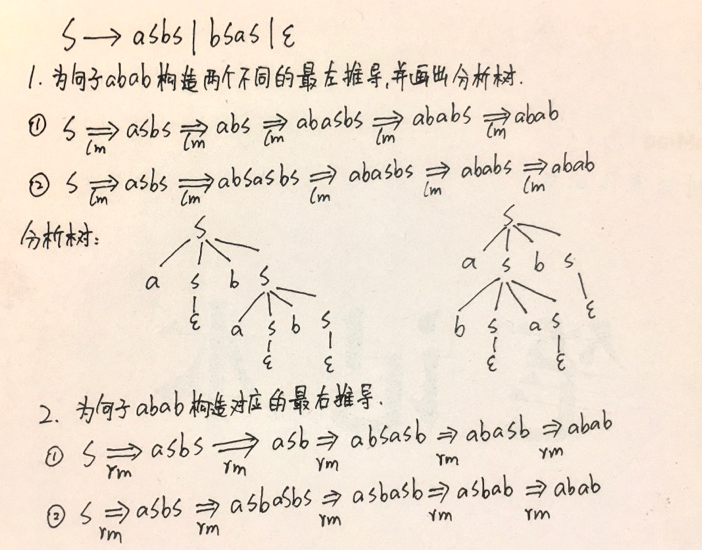 S → aSbS | bSaS | ε
1. 为句子abab构造两个不同的最左推导,并画出分析树.
① S ⇒lm aSbS ⇒lm abS ⇒lm abaSbS ⇒lm ababS ⇒lm abab
② S ⇒lm aSbS ⇒lm abSaSbS ⇒lm abaSbS ⇒lm ababS ⇒lm abab
分析树:
S S
a S b S a S b S
ε a S b S b S a S ε
ε ε ε ε
2. 为句子abab构造对应的最右推导.
① S ⇒rm aSbS ⇒rm aSb ⇒rm abSaSb ⇒rm abaSb ⇒rm abab
② S ⇒rm aSbS ⇒rm aSbaSbS ⇒rm aSbaSb ⇒rm aSbab ⇒rm abab